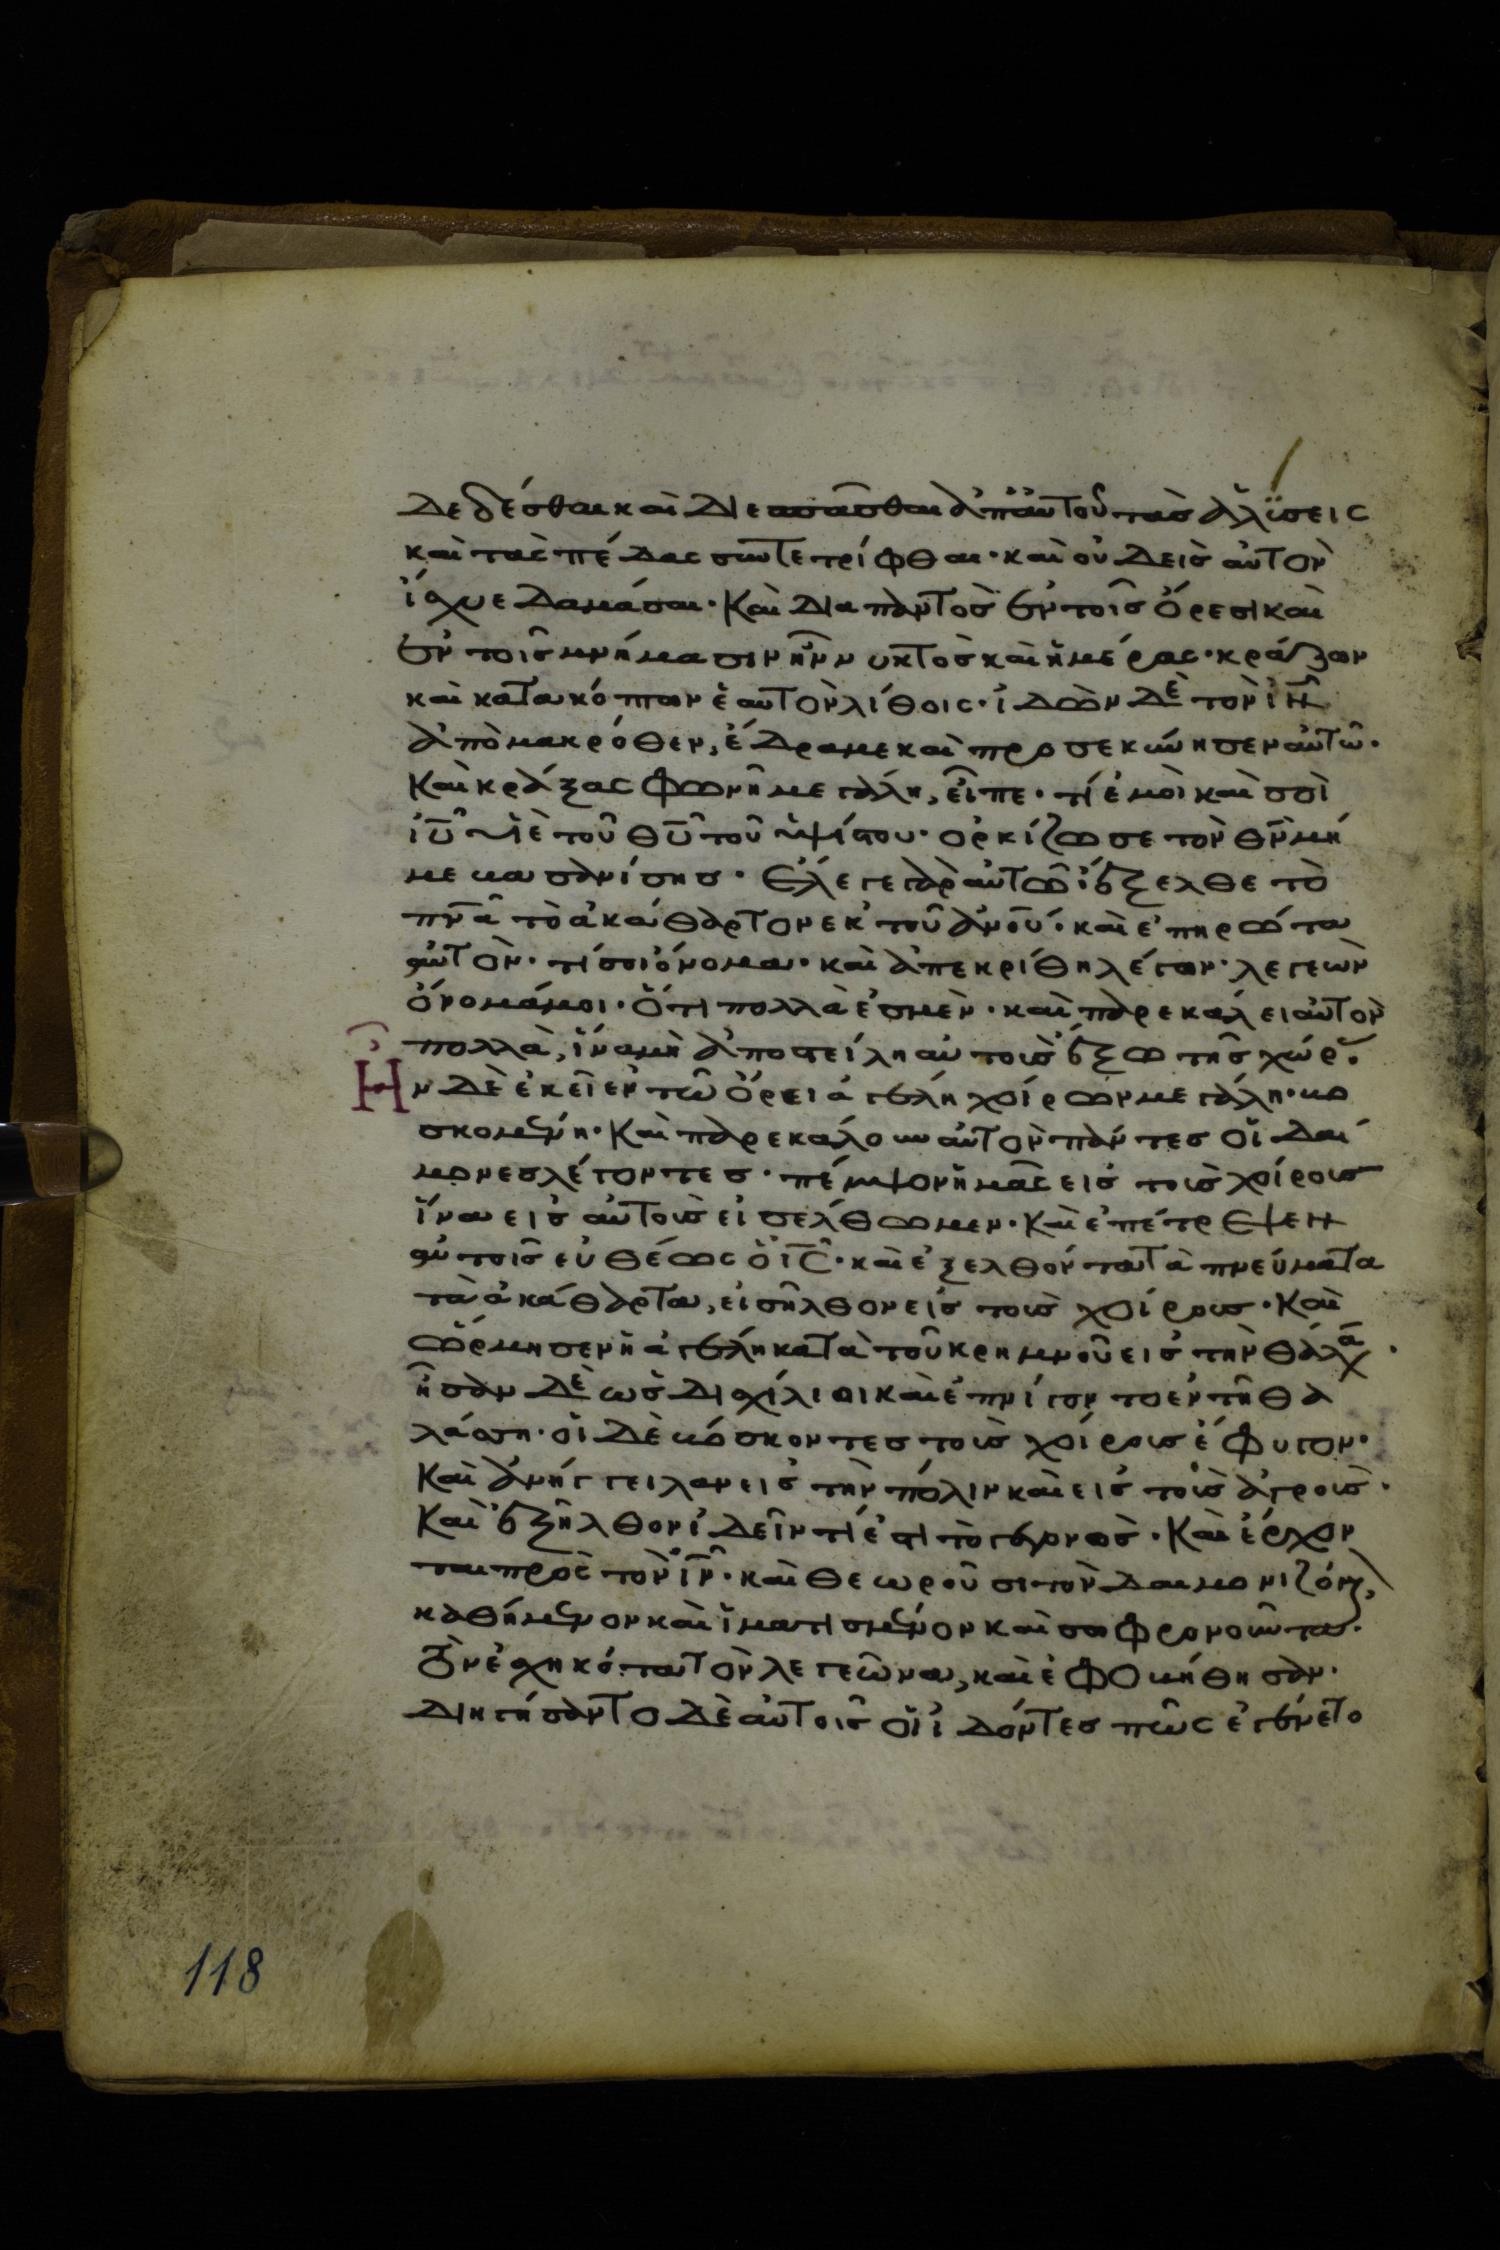 δεδέσθαι καὶ διεσπᾶσθαι ἀπ' αὐτοῦ τὰσ ἁλύσεις
καὶ τὰς πέδας συντετρίφθαι· καὶ οὐδεὶσ αὐτὸν
ἴσχυε δαμάσαι· Καὶ διαπαντὸσ ἐν τοῖσ ὄρεσι καὶ
ἐν τοῖσ μνήμασιν ἦν νυκτὸσ καὶ ἡμέρας· κράζων
καὶ κατακόπτων ἑαυτὸν λίθοις· ἰδὼν δὲ τὸν ιν
ἀπὸ μακρόθεν, ἔδραμε καὶ προσεκύνησεν αὐτῶ·
Καὶ κράξας φωνῆ μεγάλη, εἶπε· τί ἐμοὶ καὶ σοὶ
ιυ υἱὲ τοῦ θυ τοῦ ὑψίστου· ὁρκίζω σε τὸν θν μή
με βασανίσησ· Ἔλεγε γὰρ αὐτῶ ἔξελθε τὸ
πνα τὸ ἀκάθαρτον ἐκ τοῦ ἀνου· καὶ ἐπηρώτα
αὐτὸν· τί σοι ὄνομα· καὶ ἀπεκρίθη λέγων· λεγεὼν
ὄνομά μοι· ὅτι πολλὰ ἐσμὲν· καὶ παρεκάλει αὐτὸν
πολλὰ, ἵνα μὴ ἀποστείλη αὐτοὺσ ἔξω τῆσ χώρ
Ἦν δὲ ἐκεῖ ἐν τῶ ὄρει ἀγέλη χοίρων μεγάλη· βο
σκομένη· Καὶ παρεκάλουν αὐτὸν πάντεσ οἱ δαί
μονεσ λέγοντεσ· πέμψον ἡμᾶς εἰσ τοὺσ χοίρουσ
ἵνα εἰσ αὐτοὺσ εἰσέλθωμεν· Καὶ ἐπέτρεψεν
αὐτοῖσ εὐθέως ὁ ις· καὶ ἐξελθόντα τὰ πνεύματα
τὰ ἀκάθαρτα, εἰσῆλθον εἰσ τοὺσ χοίρουσ· Καὶ
ὥρμησεν ἡ ἀγέλη κατὰ τοῦ κρημνοῦ εἰσ τὴν θάλα·
ἦσαν δὲ ὡσ δισχίλιοι καὶ ἐπνίγοντο ἐν τῆ θα
λάσση· οἱ δὲ βόσκοντεσ τοὺσ χοίρουσ ἔφυγον·
Καὶ ἀνήγγειλαν εἰσ τὴν πόλιν καὶ εἰσ τοὺσ ἀγροὺσ·
Καὶ ἐξῆλθον ἰδεῖν τί ἐστι τὸ γεγονὸσ· Καὶ ἔρχον
ται πρὸς τὸν ιν· καὶ θεωροῦσι τὸν δαιμονιζόμ,
καθήμενον καὶ ἱματισμένον καὶ σωφρονοῦντα·
τὸν ἐσχηκότα τὸν λεγεῶνα, καὶ ἐφοβήθησαν·
διηγήσαντο δὲ αὐτοῖσ οἱ ἰδόντεσ πῶς ἐγένετο
118